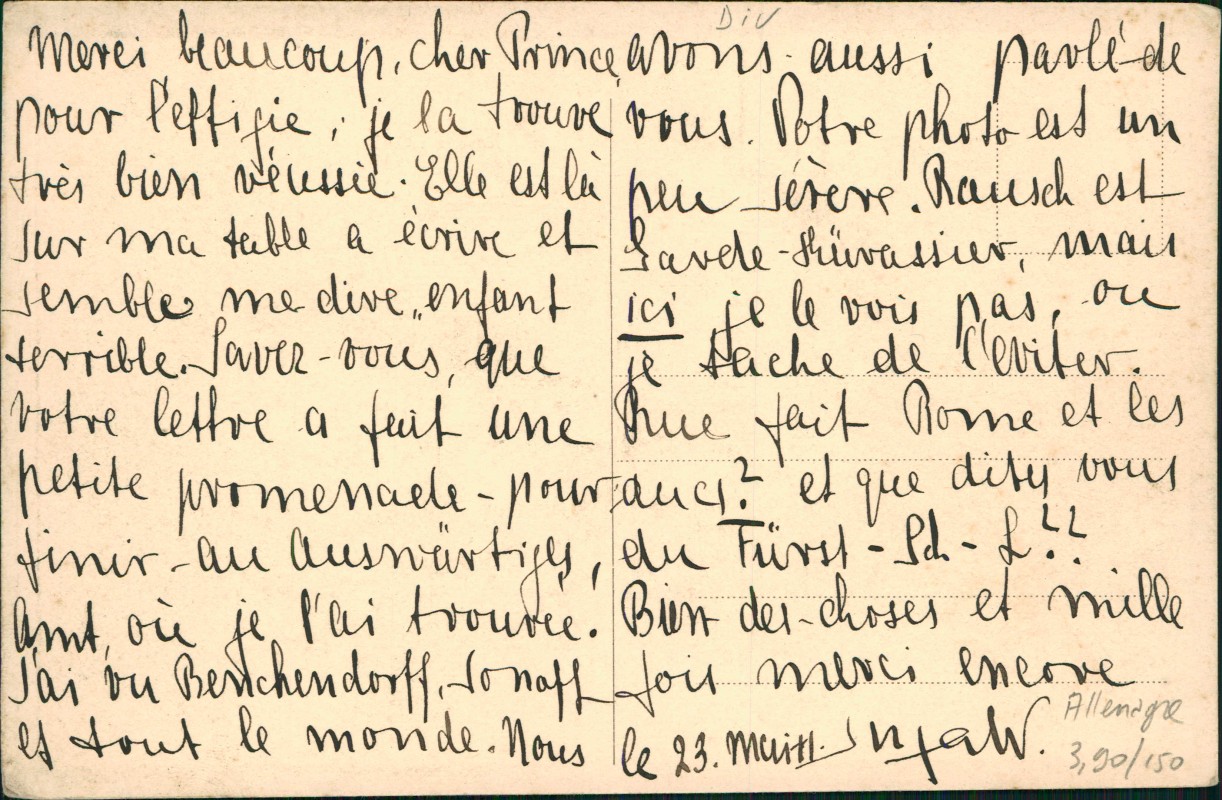 Div
Merci beaucoup, cher Prince,
pour l'effigie, je la trouve
très bien réussie. Elle est là
sur ma table a écrire et
semble me dire „enfant
terrible. Savez-vous, que
votre lettre a fait une
petite promenade - pour
finir - au Auswärtiges,
Amt, où je l'ai trouvée!
J'ai vu Benckendorff,
et tout le monde. Nous
avons aussi parlé de
vous. Votre photo est un
peu sévère. Rausch est
Garde-Kürassier, mais
ici je le vois pas, ou
je tache de l'eviter.
Que fait Rome et les
? et que dites vous
du Fürst - Sch - L??
Bien des choses et mille
fois merci encore
le 23.
Allemagne
3,90/150